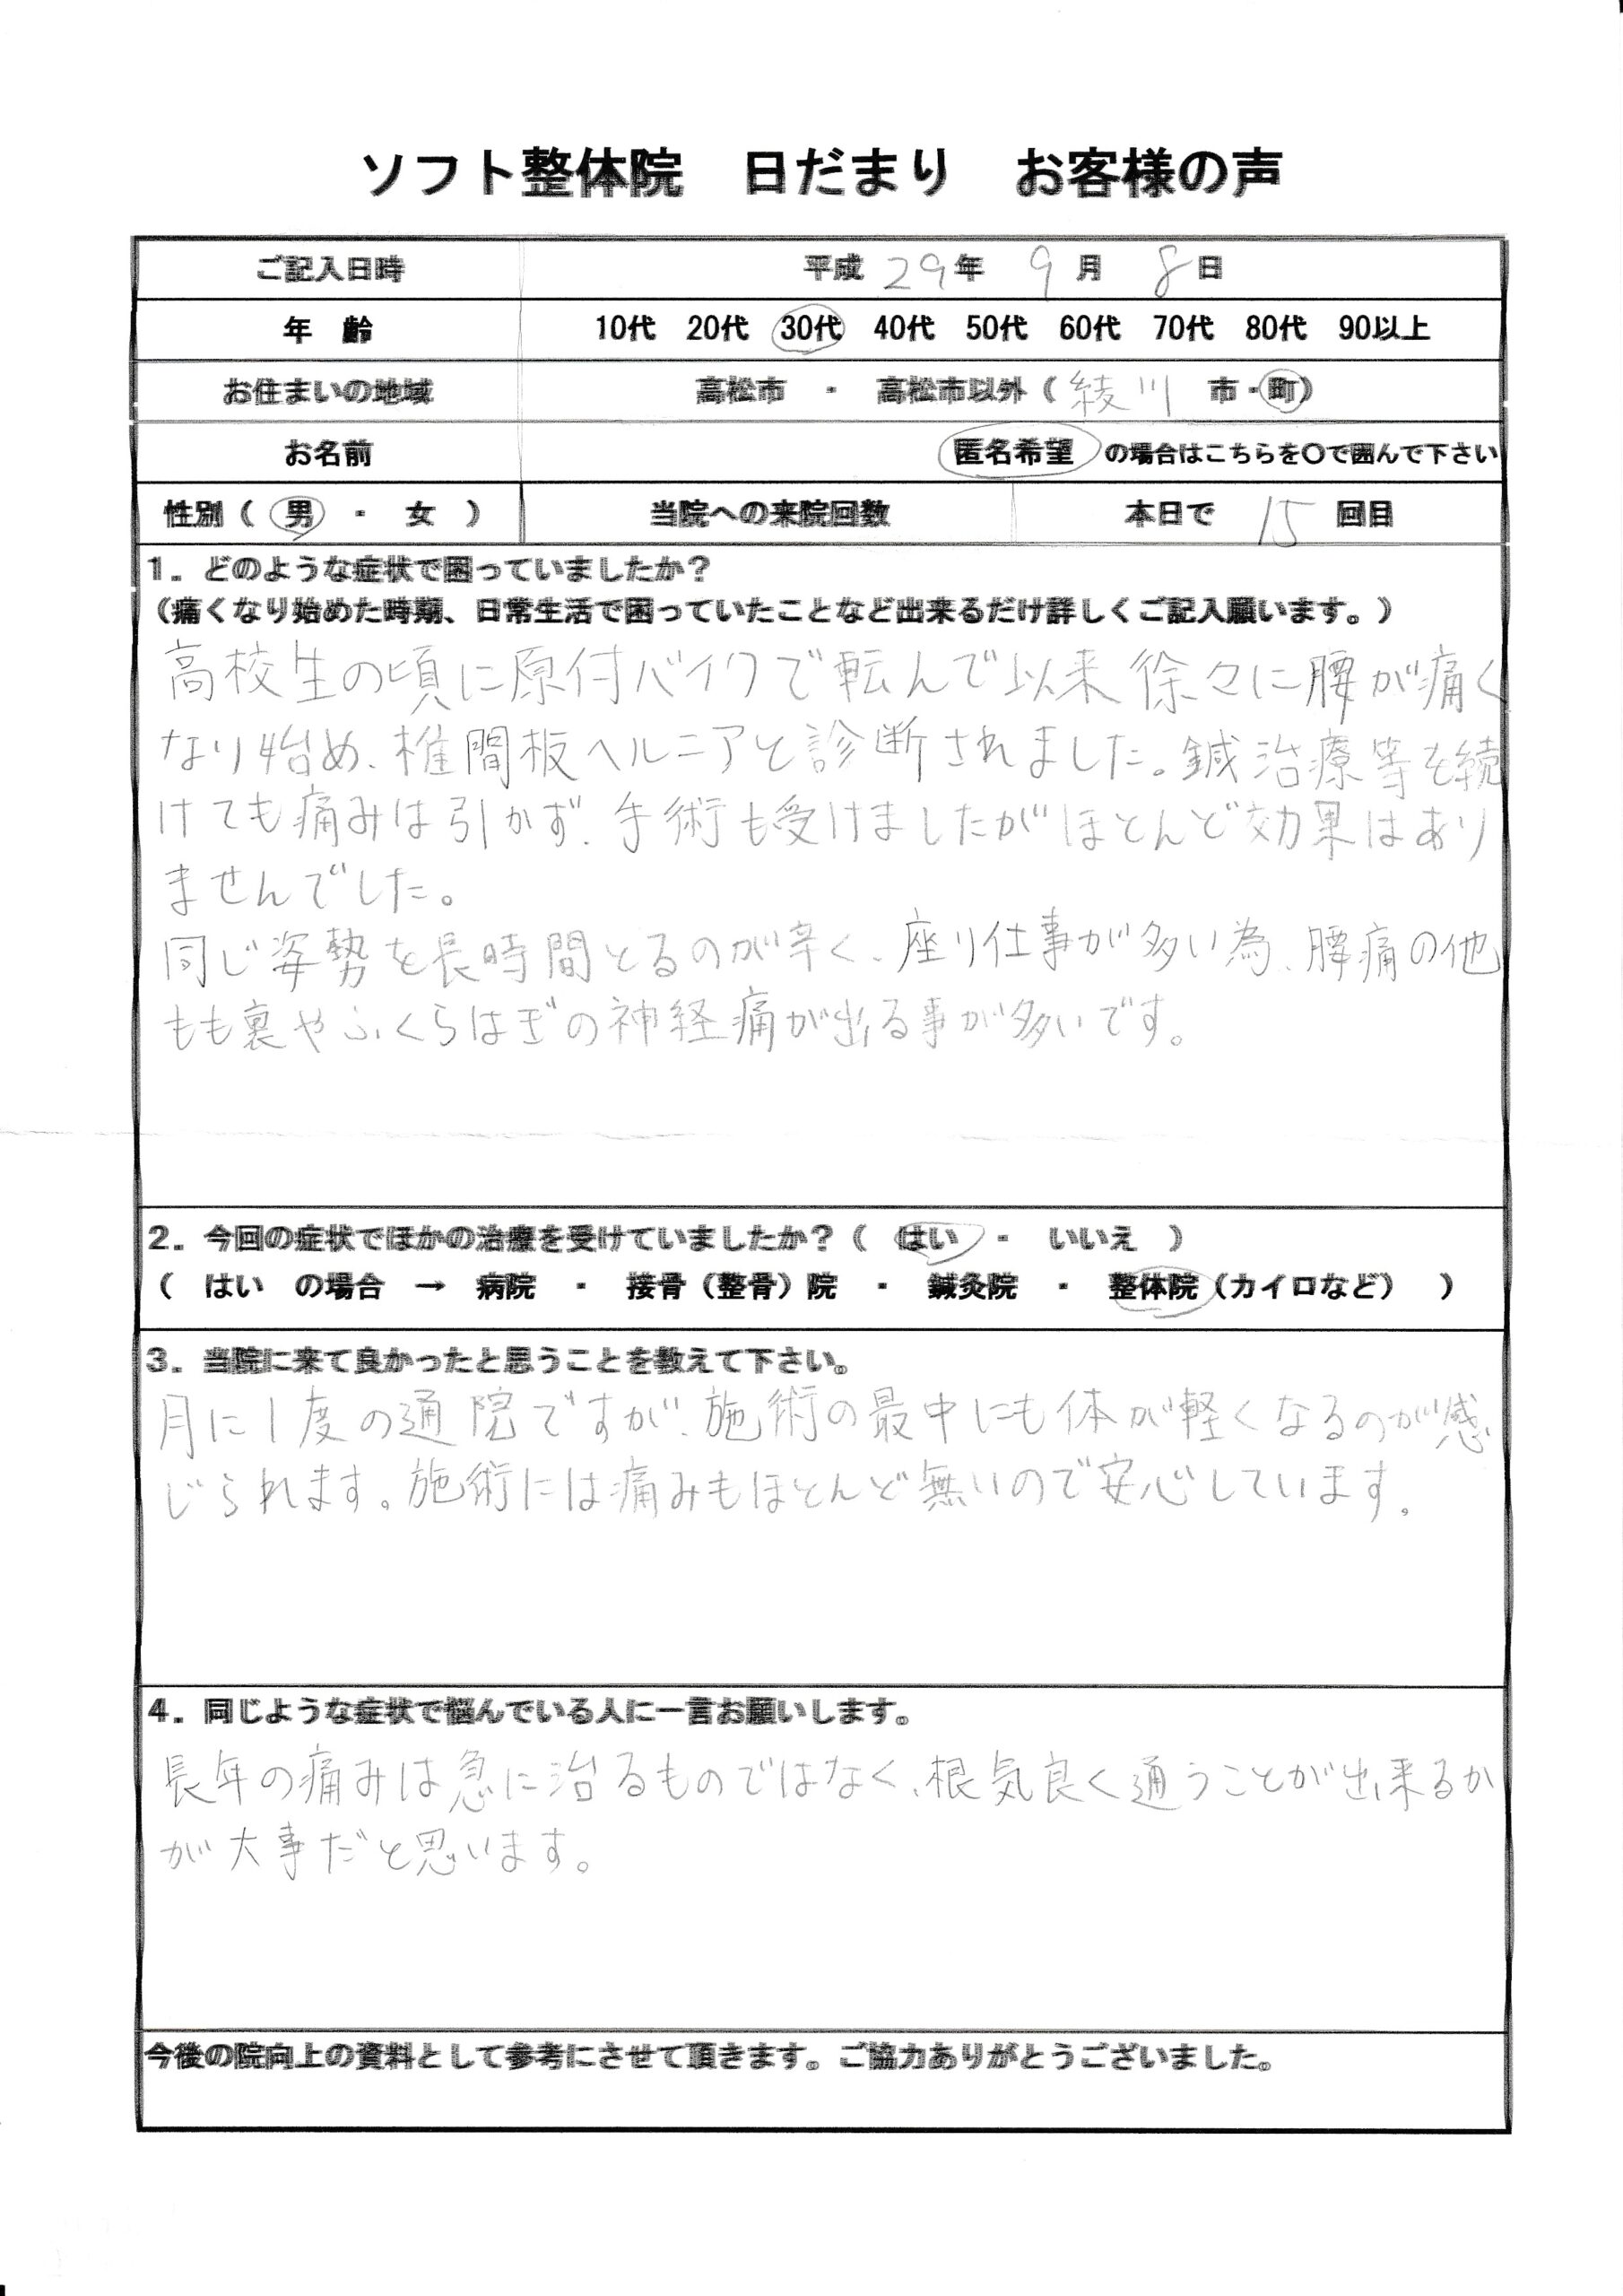 ソフト整体院 日だまり お客様の声
ご記入日時 平成 29年 9月 8日
年 齢 10代 20代 30代 40代 50代 60代 70代 80代 90以上
お住まいの地域 高松市 ・ 高松市以外（ 綾川 市・町）
お名前 匿名希望 の場合はこちらを〇で囲んで下さい
性別（ 男 ・ 女 ） 当院への来院回数 本日で 15 回目
1．どのような症状で困っていましたか？
（痛くなり始めた時期、日常生活で困っていたことなど出来るだけ詳しくご記入願います。）
高校生の頃に原付バイクで転んで以来徐々に腰が痛く
なり始め、椎間板ヘルニアと診断されました。鍼治療等を続
けても痛みは引かず、手術も受けましたがほとんど効果はあり
ませんでした。
同じ姿勢を長時間とるのが辛く、座り仕事が多い為、腰痛の他
もも裏やふくらはぎの神経痛が出る事が多いです。
2．今回の症状でほかの治療を受けていましたか？（ はい ・ いいえ ）
（ はい の場合 → 病院 ・ 接骨（整骨）院 ・ 鍼灸院 ・ 整体院（カイロなど） ）
3．当院に来て良かったと思うことを教えて下さい。
月に1度の通院ですが、施術の最中にも体が軽くなるのが感
じられます。施術には痛みもほとんど無いので安心しています。
4．同じような症状で悩んでいる人に一言お願いします。
長年の痛みは急に治るものではなく、根気良く通うことが出来るか
が大事だと思います。
今後の院向上の資料として参考にさせて頂きます。ご協力ありがとうございました。